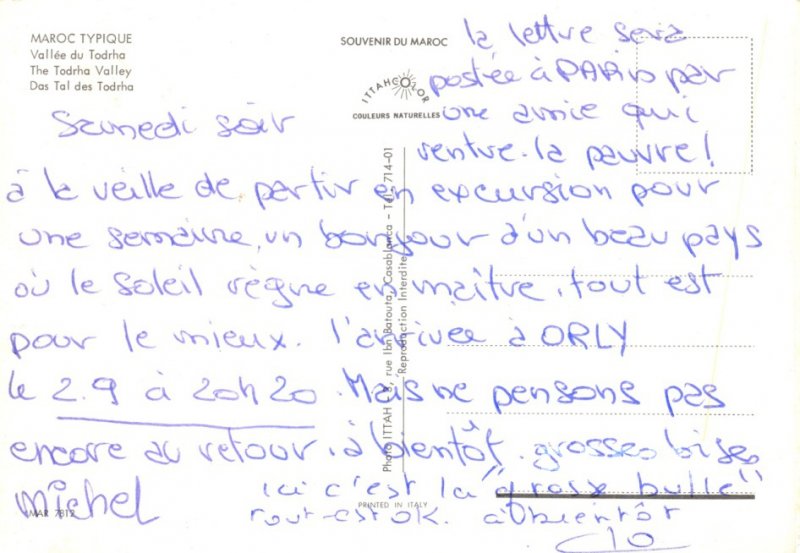 MAROC TYPIQUE
Vallée du Todrha
The Todrha Valley
Das Tal des Todrha
SOUVENIR DU MAROC
ITTAHCOLOR
COULEURS NATURELLES
la lettre sera
postée à PARIS par
une amie qui
rentre. la pauvre!
Samedi soir
à la veille de partir en excursion pour
une semaine, un bonjour d'un beau pays
où le soleil règne en maître. tout est
pour le mieux. l'arrivée à ORLY
le 2.9 à 20h20. Mais ne pensons pas
encore au retour. à bientôt. grosses bises
Michel
ici c'est la "grosse bulle"
tout est OK. à bientôt
Clo
Photo ITTAH 8, rue Ibn Batouta, Casablanca - Tél. 714-01
Reproduction Interdite
MAR 7812
PRINTED IN ITALY